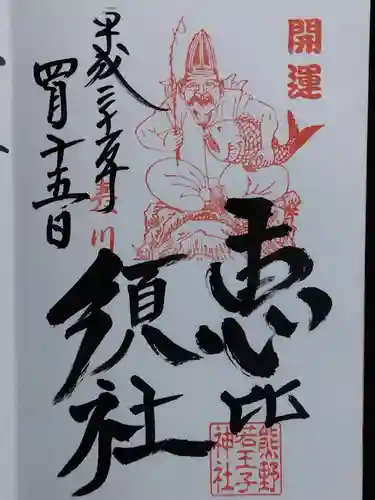 開運
恵比
須社
夷川
平成二十五年
四月十五日
熊野
若王子
神社